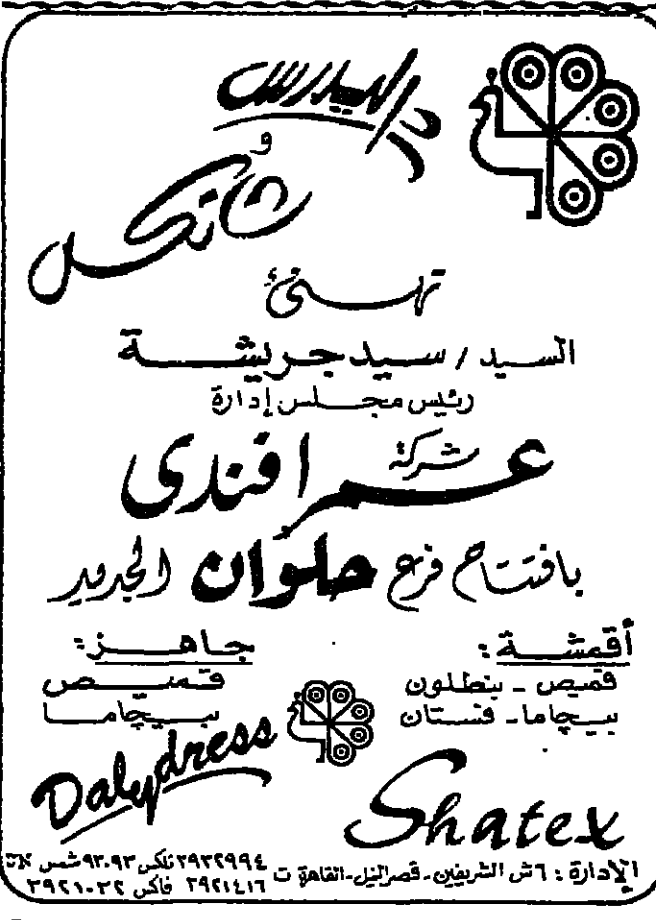 داليدرس
و
شاتكس
تهنئ
السيد / سيد جريشة
رئيس مجلس إدارة
شركة
عمر افندى
بافتتاح فرع حلوان الجديد
أقمشة :
قميص ـ بنطلون
بيجاما ـ فستان
جاهز :
قميص
بيجاما
Dalydress
Shatex
الإدارة : ٦ ش الشريفين ـ قصر النيل ـ القاهرة ت
٣٩٣٢٩٩٤ تلكس ٩٣٠٩٣ شمس
٣٩٢١٤١٦ فاكس ٣٩٢١٠٣٢